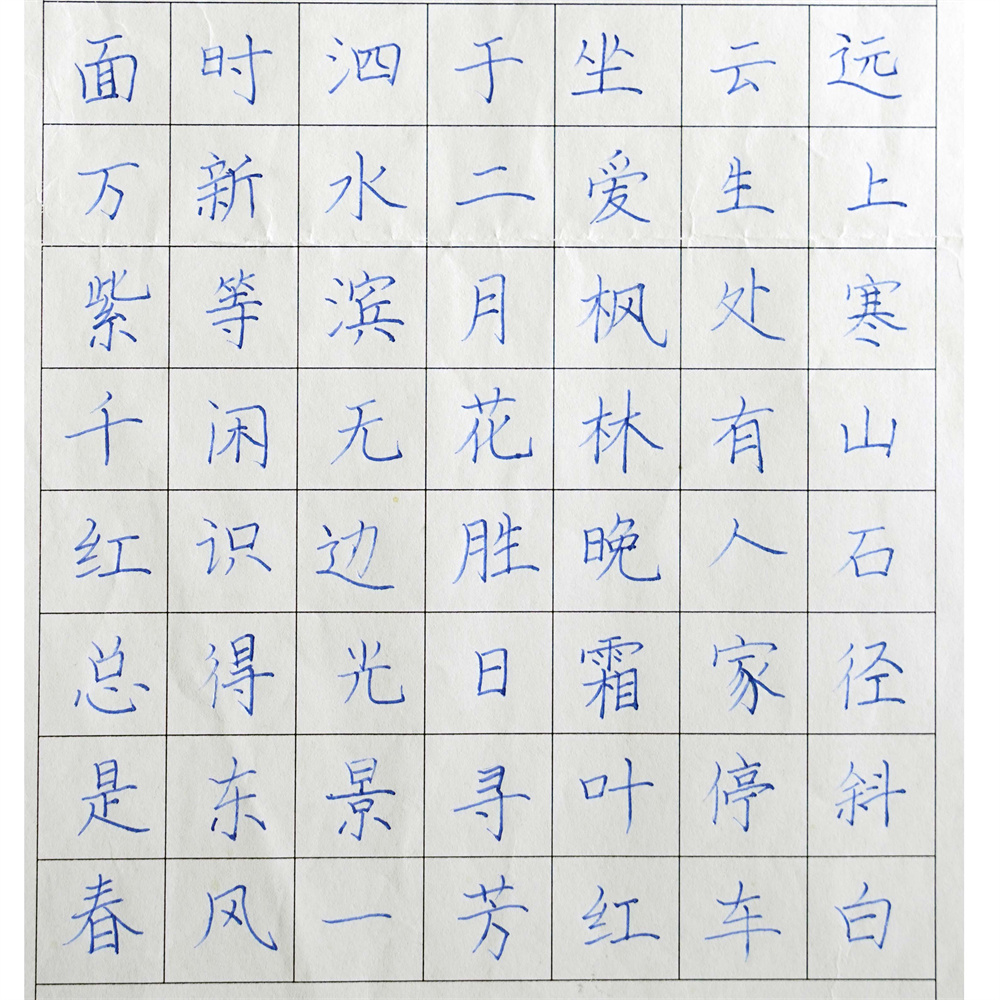 远上寒山石径斜白
云生处有人家停车
坐爱枫林晚霜叶红
于二月花胜日寻芳
泗水滨无边光景一
时新等闲识得东风
面万紫千红总是春